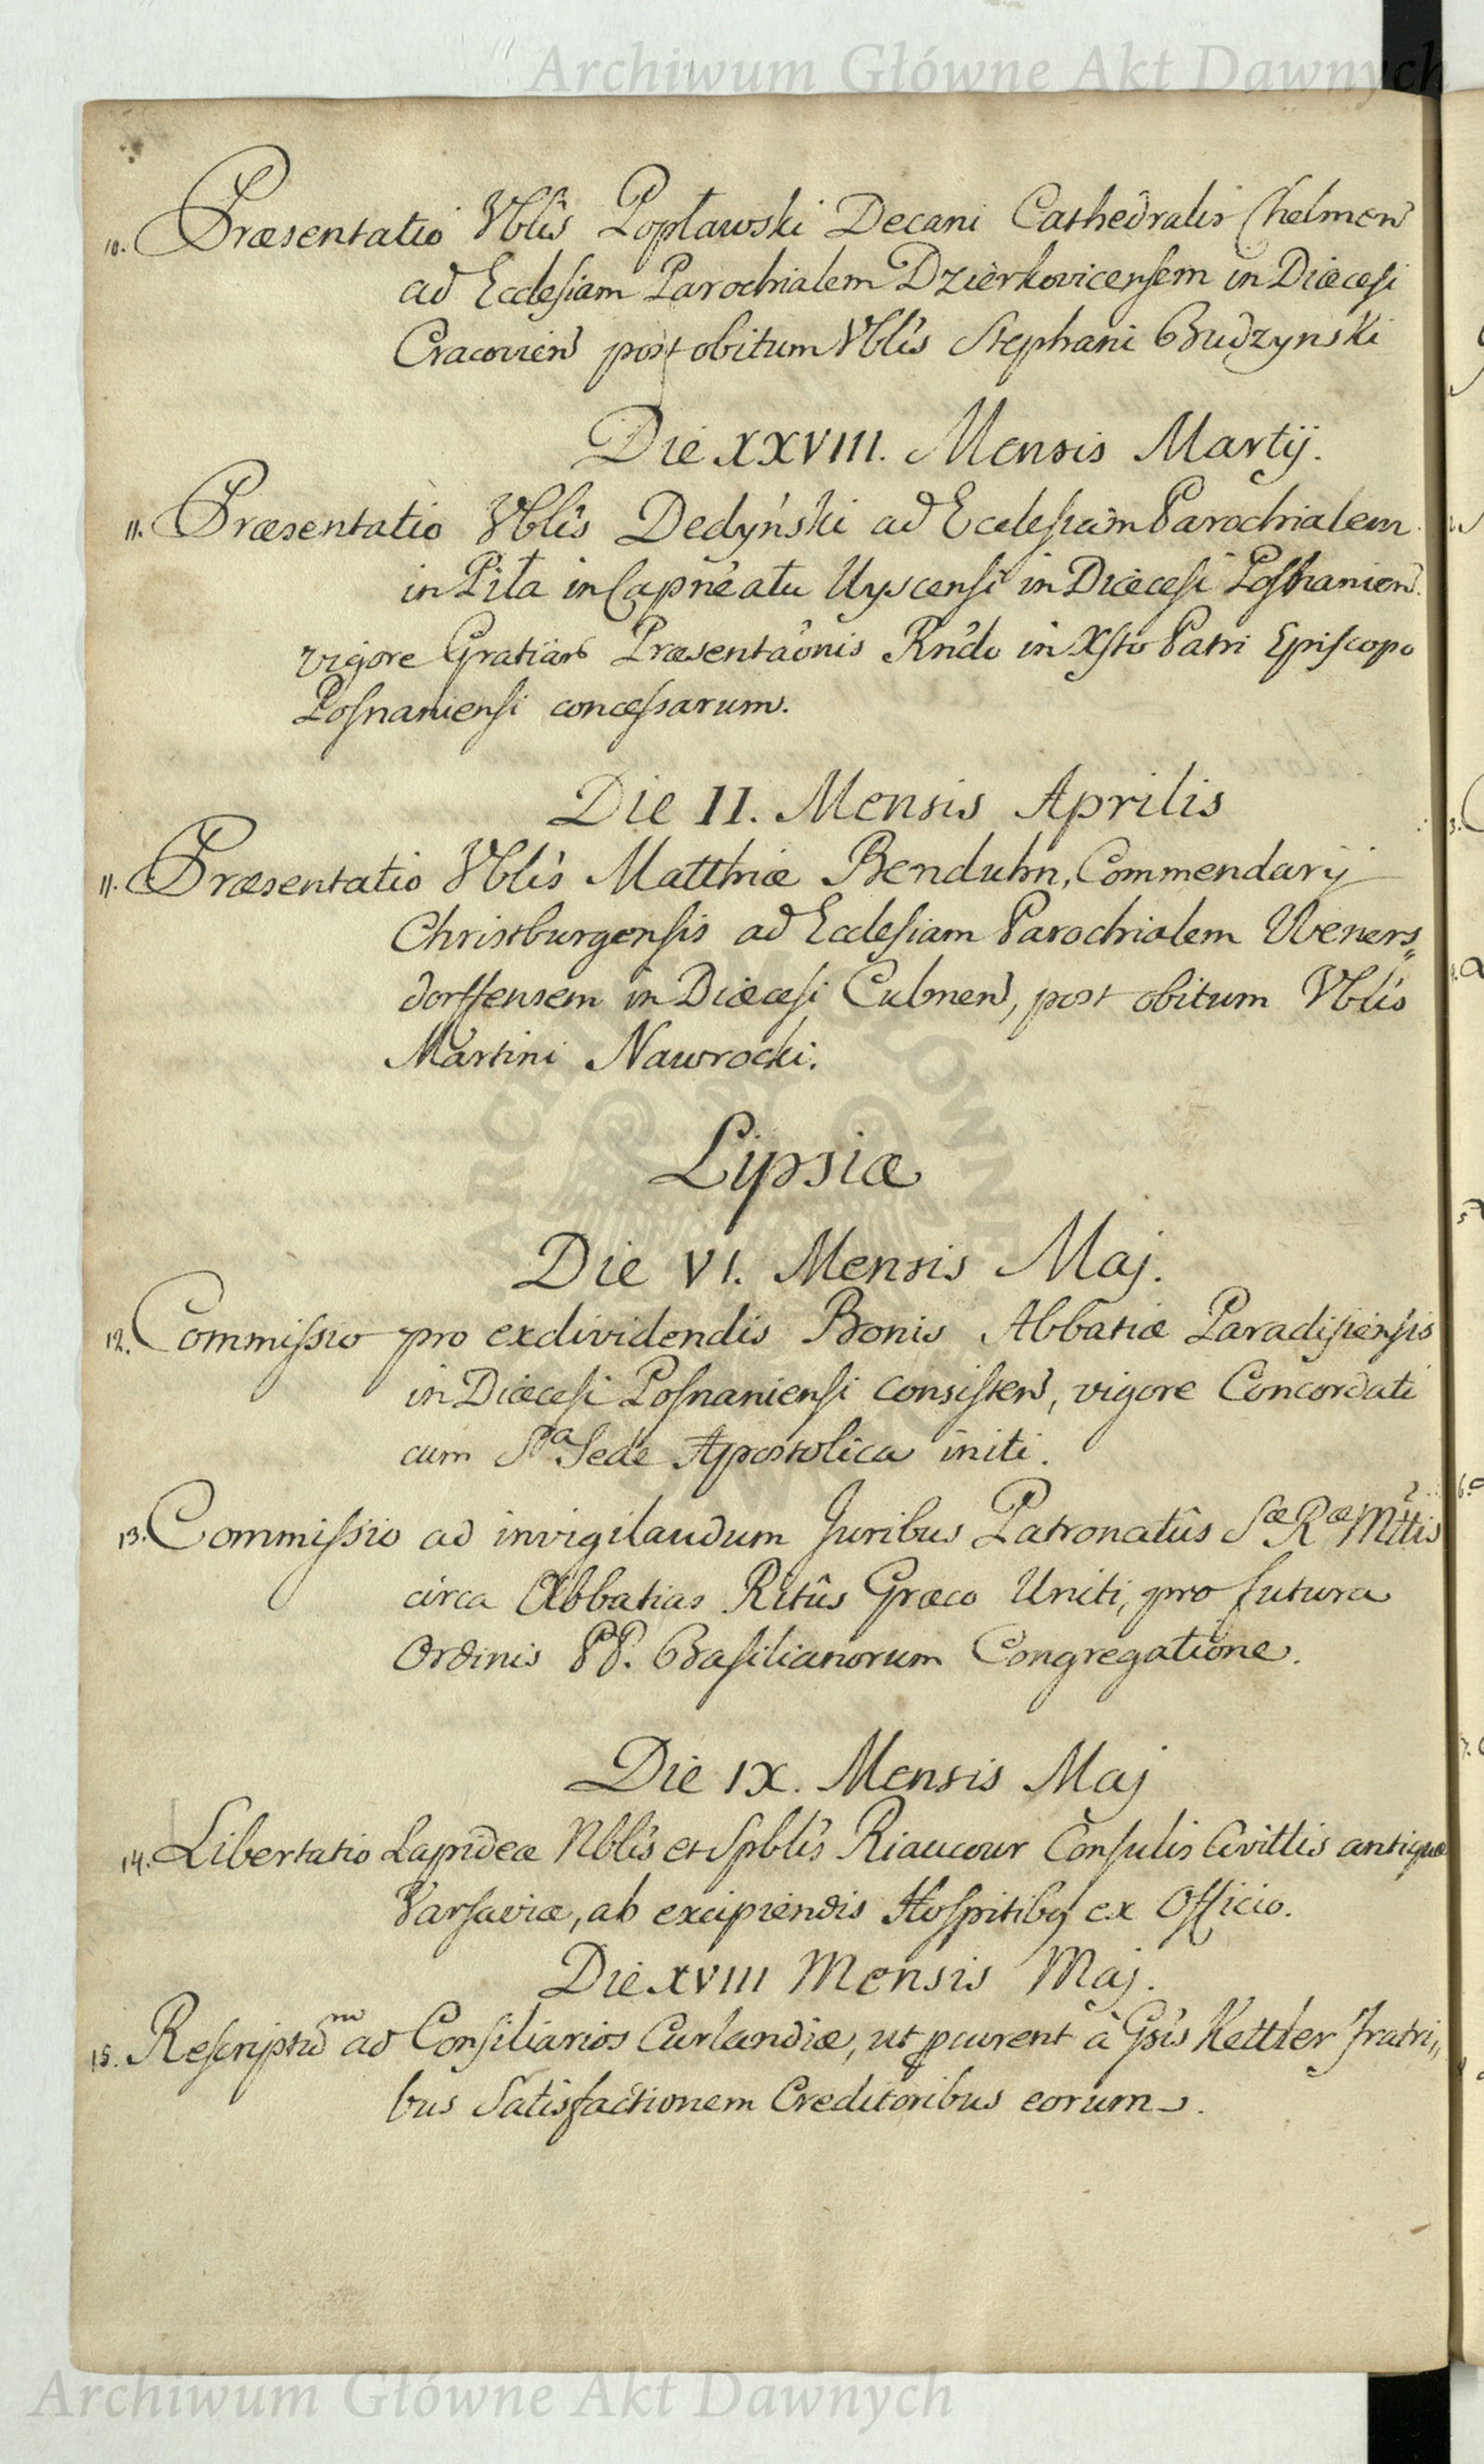 Archiwum Główne Akt Dawnych
10. Præsentatio Vblis Popławski Decani Cathedralis Chelmen
ad Ecclesiam Parochialem Dzierkovicensem in Diœcesi
Cracovien post obitum Vblis Stephani Budzynski
Die XXVIII. Mensis Martij.
11. Præsentatio Vblis Dedyński ad Ecclesiam Parochialem
in Piła in Capneatu Uyscensi in Diœcesi Posnanien.
vigore Gratiar Præsentaonis Rndo in Xsto Patri Episcopo
Posnaniensi concessarum.
Die II. Mensis Aprilis
11. Præsentatio Vblis Matthiæ Benduhn, Commendarij
Christburgensis ad Ecclesiam Parochialem Weners=
dorffensem in Diœcesi Culmen, post obitum Vblis
Martini Nawrocki.
Lipsiæ
Die VI. Mensis Maj.
12. Commissio pro exdividendis Bonis Abbatiæ Paradisiensis
in Diœcesi Posnaniensi consisten, vigore Concordati
cum Sta Sede Apostolica initi.
13. Commissio ad invigilandum Juribus Patronatûs Sæ Ræ Mttis
circa Abbatias Ritûs Græco Uniti, pro futura
Ordinis PP. Basilianorum Congregatione.
Die IX. Mensis Maj
14. Libertatio Lapideæ Nblis et Spblis Riaucour Consulis Civittis antiquæ
Varsaviæ, ab excipiendis Hospitibq ex Officio.
Die XVIII Mensis Maj.
15. Rescriptum ad Consiliarios Curlandiæ, ut pcurent à Gsis Kettler Fratri=
bus Satisfactionem Creditoribus eorum.
Archiwum Główne Akt Dawnych